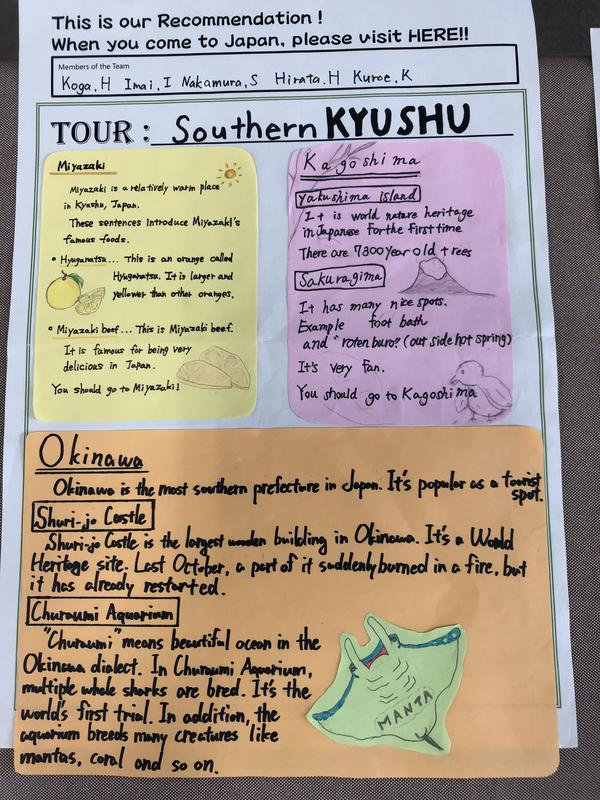 This is our Recommendation !
When you come to Japan, please visit HERE!!
Members of the Team
Koga.H Imai.I Nakamura.S Hirata.H Kuroe.K
TOUR : Southern KYUSHU
Miyazaki
Miyazaki is a relatively warm place
in Kyushu, Japan.
These sentences introduce Miyazaki's
famous foods.
• Hyuganatsu... This is an orange called
Hyuganatsu. It is larger and
yellower than other oranges.
• Miyazaki beef... This is Miyazaki beef.
It is famous for being very
delicious in Japan.
You should go to Miyazaki!
Kagoshima
Yakushima island
It is world nature heritage
in Japanese for the first time
There are 7300 year old trees
Sakuragima
It has many nice spots.
Example foot bath
and "rotenburo" (out side hot spring)
It's very fan.
You should go to Kagoshima
Okinawa
Okinawa is the most southern prefecture in Japan. It's popular as a tourist
spot.
Shuri-jo Castle
Shuri-jo Castle is the largest wooden building in Okinawa. It's a World
Heritage site. Last October, a part of it suddenly burned in a fire, but
it has already restarted.
Churaumi Aquarium
"Churaumi" means beautiful ocean in the
Okinawa dialect. In Churaumi Aquarium,
multiple whale sharks are bred. It's the
world's first trial. In addition, the
aquarium breeds many creatures like
mantas, coral and so on.
MANTA